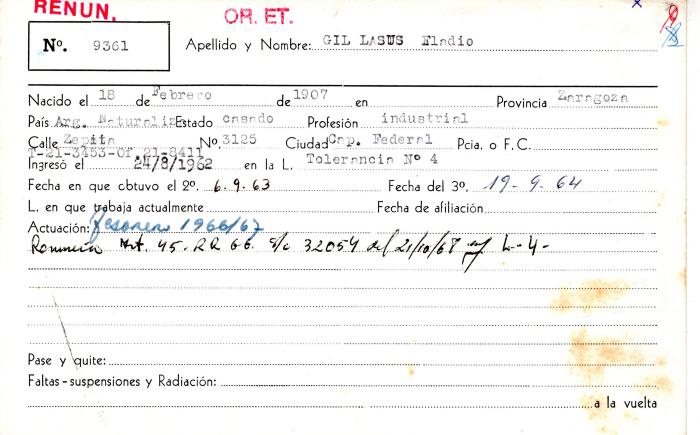 RENUN.
OR. ET.
Nº. 9361
Apellido y Nombre: GIL LASUS Eladio
Nacido el 18 de Febrero de 1907 en Provincia Zaragoza
País Arg. Naturaliz Estado casado Profesión industrial
Calle Zepita Nº. 3125 Ciudad Cap. Federal Pcia. o F. C.
T-21-3453-Of. 21-8411
Ingresó el 24/8/1962 en la L. Tolerancia Nº 4
Fecha en que obtuvo el 2º. 6.9.63 Fecha del 3º. 19-9-64
L. en que trabaja actualmente Fecha de afiliación
Actuación: Tesorero 1966/67
Renuncia Art. 45. RR 66. s/c 32054 del 21/10/68 L-4-
Pase y quite:
Faltas-suspensiones y Radiación:
a la vuelta